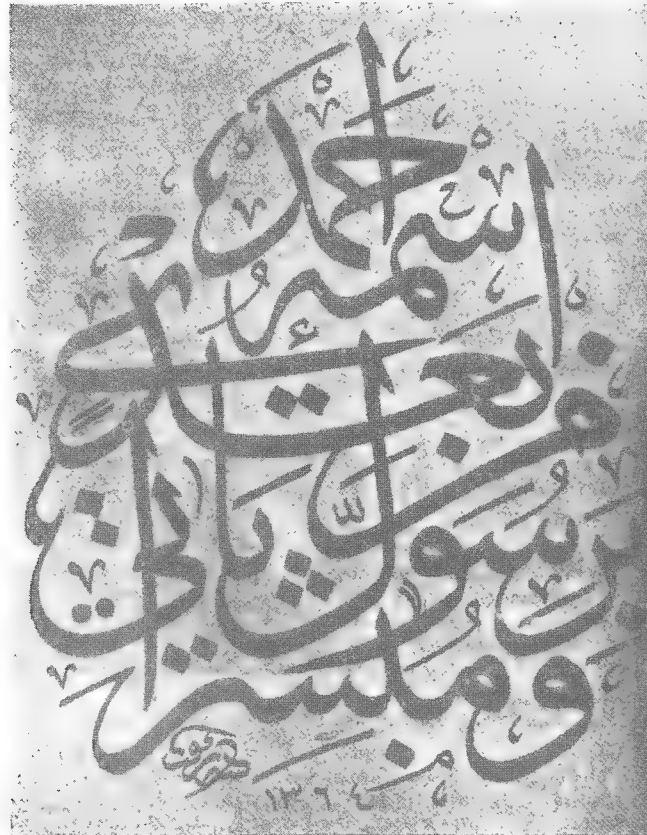 وَمُبَشِّرًا
بِرَسُولٍ يَأْتِي
مِنْ بَعْدِي
اسْمُهُ
أَحْمَدُ
١٣٦٤